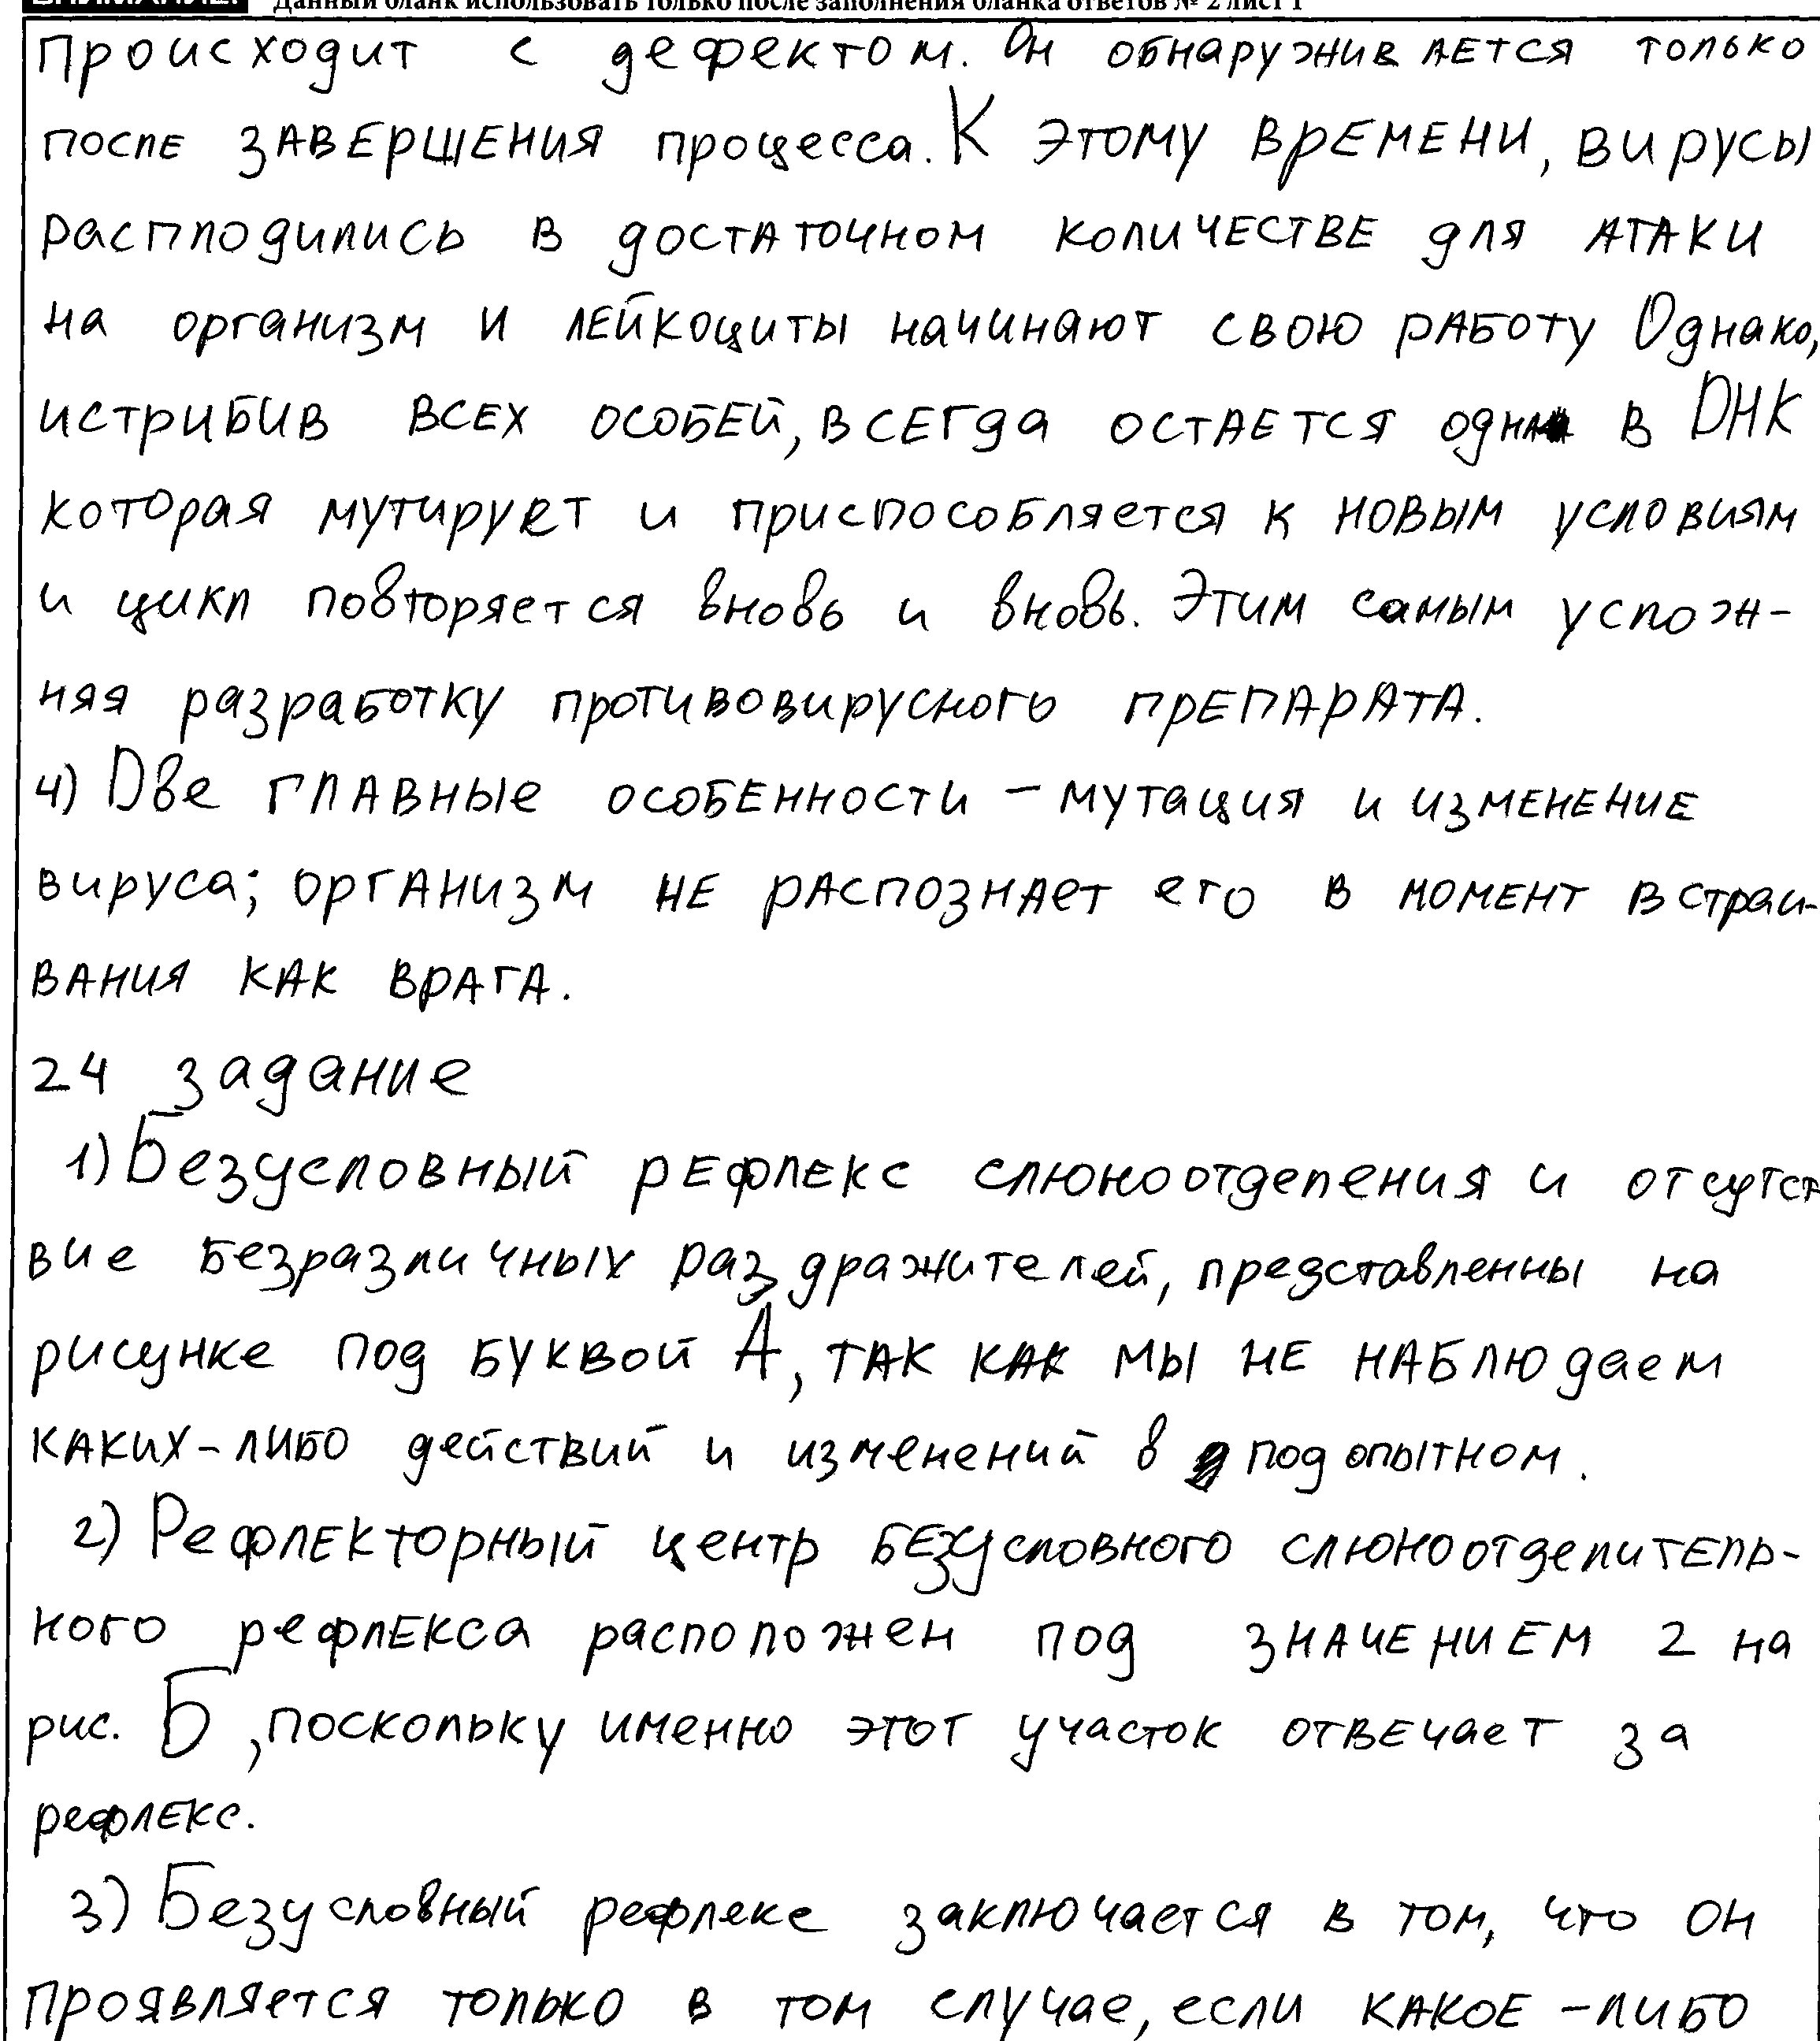 Данный бланк использовать только после заполнения бланка ответов № 2 лист 1
происходит с дефектом. Он обнаруживается только
после завершения процесса. К этому времени, вирусы
распплодились в достаточном количестве для атаки
на организм и лейкоциты начинают свою работу Однако,
истрибив всех особей, всегда остается одна в ДНК
которая мутирует и приспособляется к новым условиям
и цикл повторяется вновь и вновь. Этим самым услож-
няя разработку противовирусного препарата.
4) Две главные особенности – мутация и изменение
вируса; организм не распознает его в момент встраи-
вания как врага.
24 задание
1) Безусловный рефлекс слюноотделения и отсутст
вие безразличных раздражителей, представленны на
рисунке под буквой А, так как мы не наблюдаем
каких-либо действий и изменений в подопытном.
2) Рефлекторный центр безусловного слюноотделитель-
ного рефлекса расположен под значением 2 на
рис. Б, поскольку именно этот участок отвечает за
рефлекс.
3) Безусловный рефлекс заключается в том, что он
проявляется только в том случае, если какое-либо